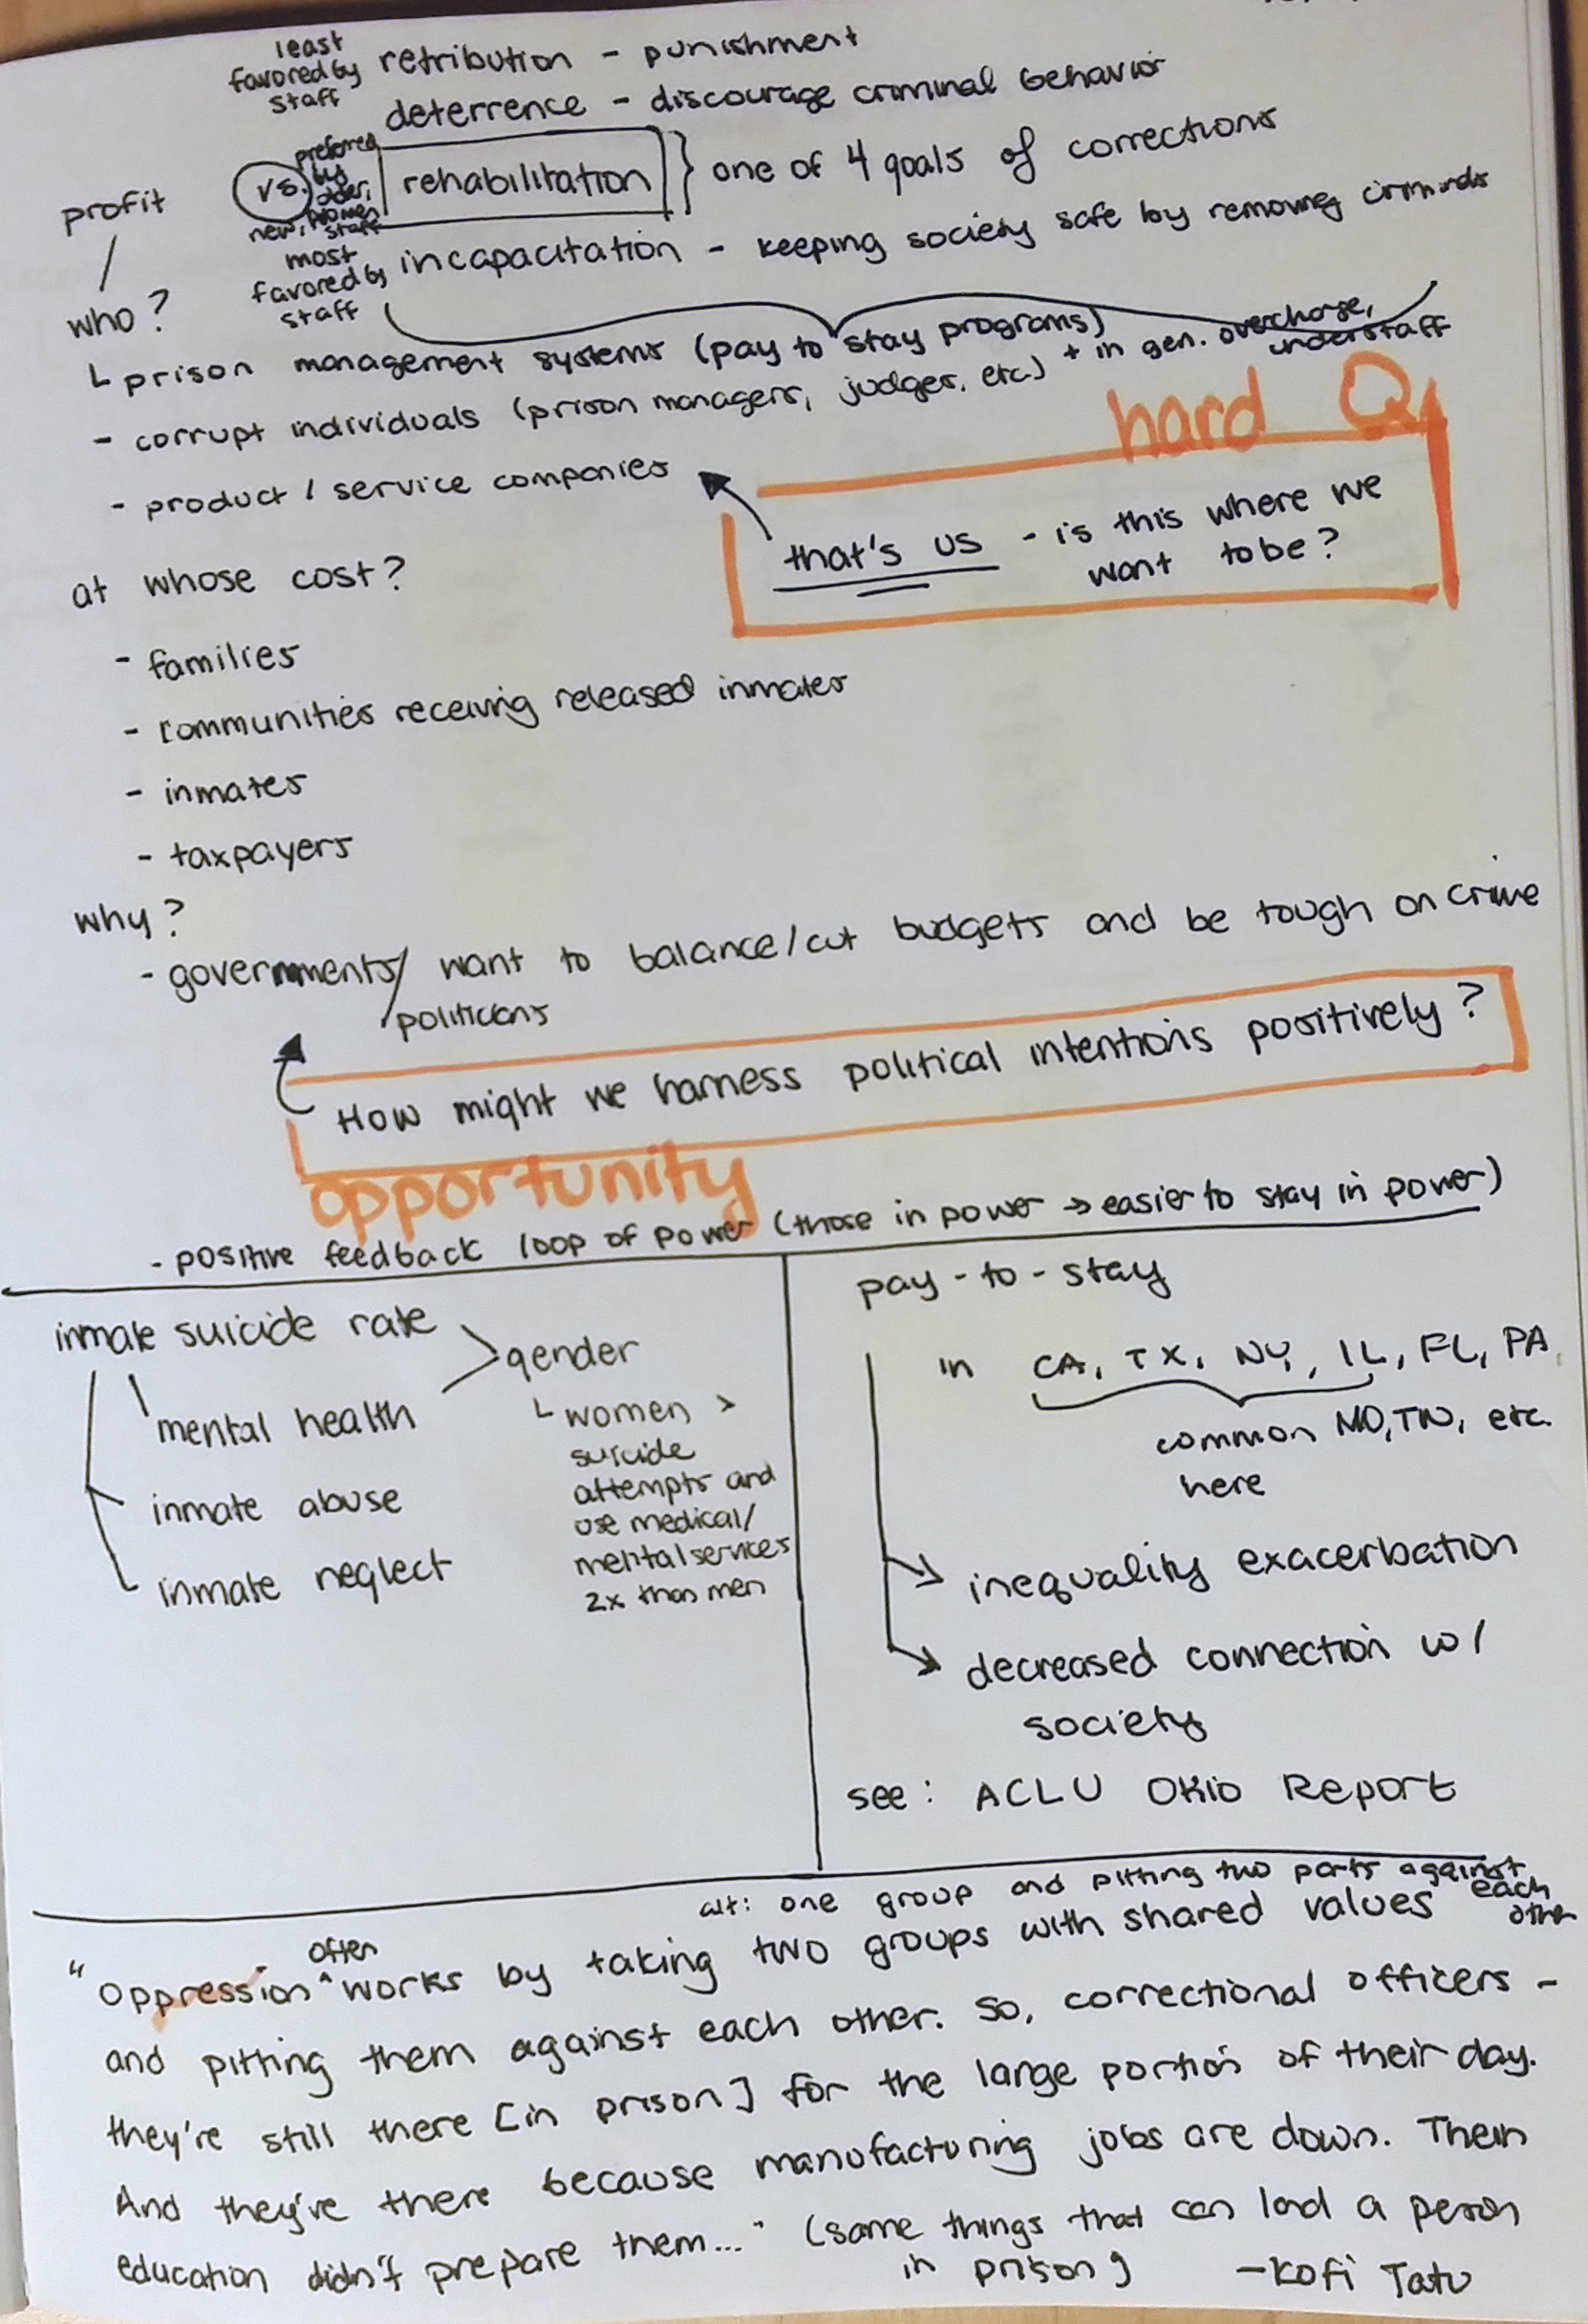 least
favored by
staff
retribution - punishment
deterrence - discourage criminal behavior
profit
vs.
preferred
by
older,
women
new, staff
rehabilitation } one of 4 goals of corrections
most
favored by
staff
incapacitation - keeping society safe by removing criminals
who?
prison management systems (pay to stay programs)
+ in gen. overcharge,
understaff
- corrupt individuals (prison managers, judges, etc.)
- product / service companies
hard Q
that's us - is this where we
want to be?
at whose cost?
- families
- communities receiving released inmates
- inmates
- taxpayers
why?
- governments/ want to balance/cut budgets and be tough on crime
politicians
How might we harness political intentions positively?
opportunity
- positive feedback loop of power (those in power → easier to stay in power)
inmate suicide rate
mental health
inmate abuse
inmate neglect
gender
women >
suicide
attempts and
use medical/
mental services
2x than men
pay-to-stay
in CA, TX, NY, IL, FL, PA,
common MO, TN, etc.
here
→ inequality exacerbation
→ decreased connection w/
society
see: ACLU Ohio Report
alt: one group and pitting two parts against
each
other
often
"Oppression ^ works by taking two groups with shared values
and pitting them against each other. So, correctional officers -
they're still there [in prison] for the large portion of their day.
And they're there because manufacturing jobs are down. Their
education didn't prepare them..." (same things that can land a person
in prison)
- Kofi Tatu